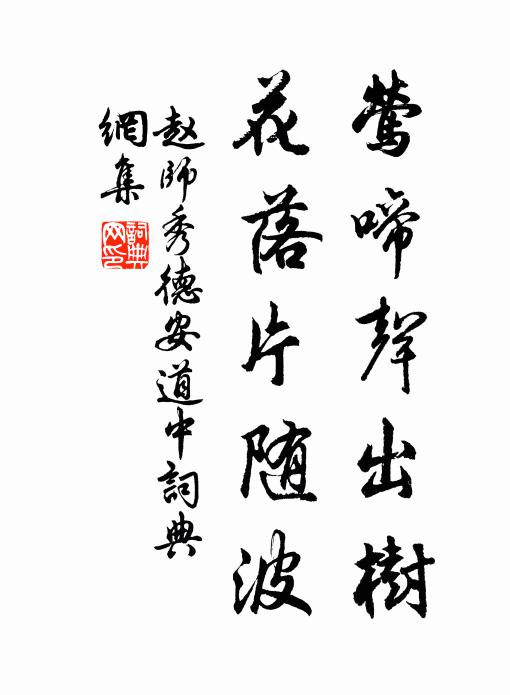 鶯啼聲出樹
花落片随波
赵師秀德安道中詞典
網集
詞典
网印